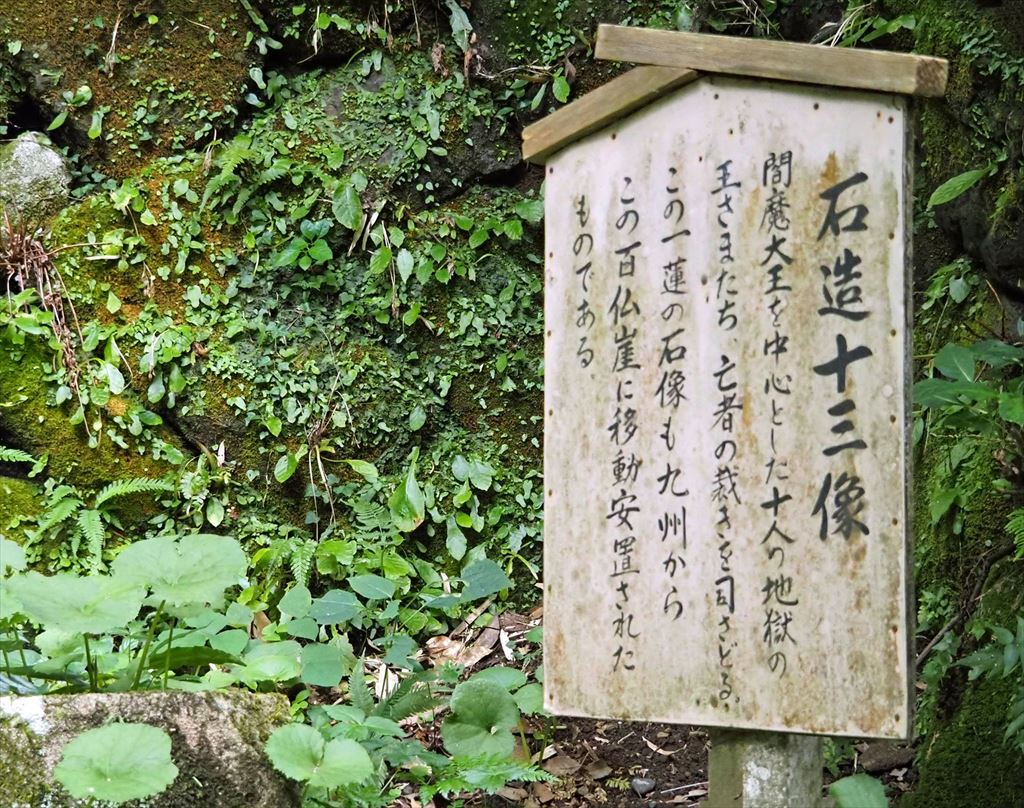 石造十三像
閻魔大王を中心とした十人の地獄の
王さまたち、亡者の裁きを司さどる。
この一蓮の石像も九州から
この百仏崖に移動安置された
ものである。